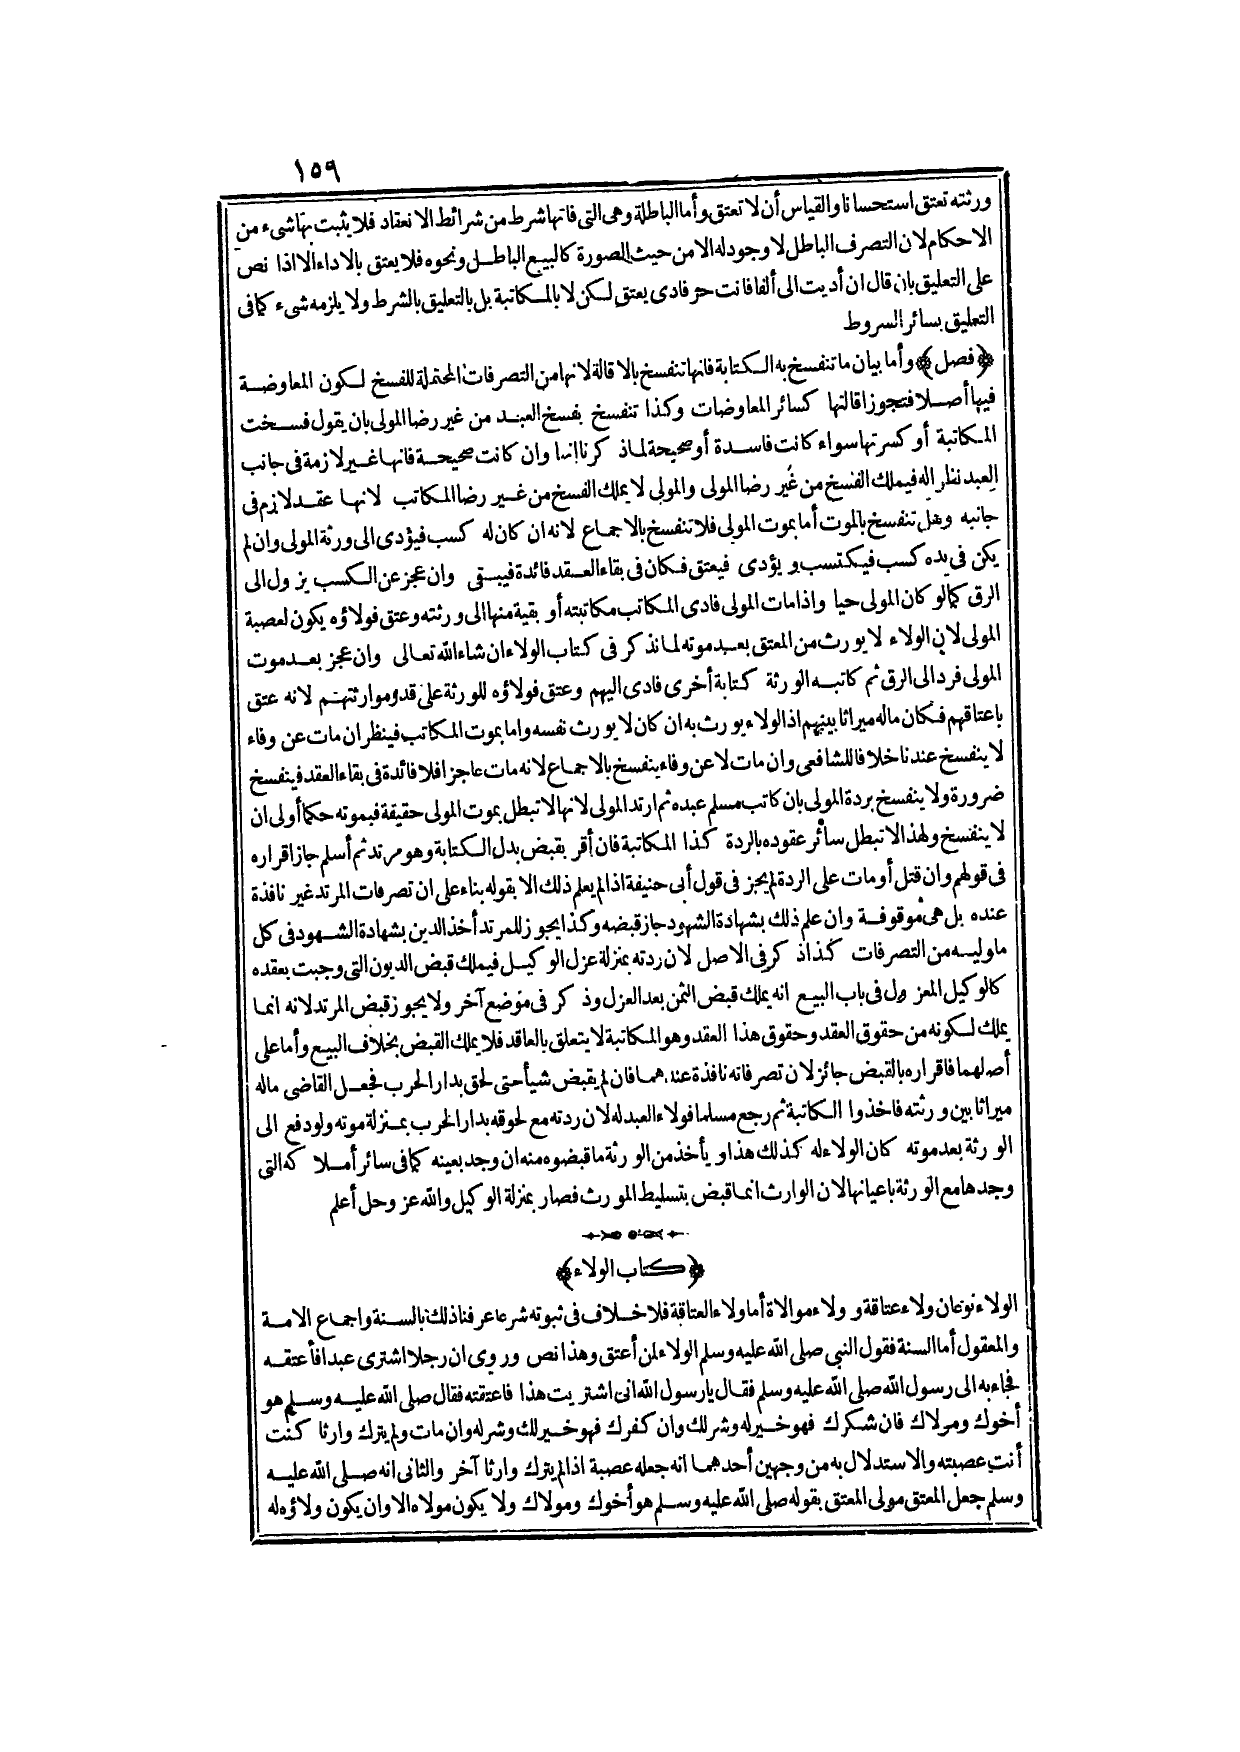 ١٥٩
ورثته تعتق استحسانا والقياس أن لا تعتق وأما الباطلة وهى التى فاتها شرط من شرائط الانعقاد فلا يثبت بها شىء من
الاحكام لان التصرف الباطل لا وجود له الا من حيث الصورة كالبيع الباطل ونحوه فلا يعتق بالاداء الا اذا نص
على التعليق بان قال ان أديت الى ألفا فانت حر فادى يعتق لكن لا بالمكاتبة بل بالتعليق بالشرط ولا يلزمه شىء كما فى
التعليق بسائر السروط
﴿فصل﴾ وأما بيان ما تنفسخ به الكتابة فانها تنفسخ بالاقالة لانها من التصرفات المحتملة للفسخ لكون المعاوضة
فيها أصلا فتجوز اقالتها كسائر المعاوضات وكذا تنفسخ بفسخ العبد من غير رضا المولى بان يقول فسخت
المكاتبة أو كسرتها سواء كانت فاسدة أو صحيحة لما ذكرنا انها وان كانت صحيحة فانها غير لازمة فى جانب
العبد نظرا له فيملك الفسخ من غير رضا المولى والمولى لا يملك الفسخ من غير رضا المكاتب لانها عقد لازم فى
جانبه وهل تنفسخ بالموت أما بموت المولى فلا تنفسخ بالاجماع لانه ان كان له كسب فيؤدى الى ورثة المولى وان لم
يكن فى يده كسب فيكتسب ويؤدى فيعتق فكان فى بقاء العقد فائدة فيبقى وان عجز عن الكسب يزول الى
الرق كما لو كان المولى حيا واذا مات المولى فادى المكاتب مكاتبته أو بقية منها الى ورثته وعتق فولاؤه يكون لعصبة
المولى لان الولاء لا يورث من المعتق بعد موته لما نذكر فى كتاب الولاء ان شاء الله تعالى وان عجز بعد موت
المولى فرد الى الرق ثم كاتبه الورثة كتابة أخرى فادى اليهم وعتق فولاؤه للورثة على قدر مواريثهم لانه عتق
باعتاقهم فكان ماله ميراثا بينهم اذ الولاء يورث به ان كان لا يورث نفسه واما بموت المكاتب فينظر ان مات عن وفاء
لا ينفسخ عندنا خلافا للشافعى وان مات لا عن وفاء ينفسخ بالاجماع لانه مات عاجزا فلا فائدة فى بقاء العقد فينفسخ
ضرورة ولا ينفسخ بردة المولى بان كاتب مسلم عبده ثم ارتد المولى لانها لا تبطل بموت المولى حقيقة فبموته حكما أولى ان
لا ينفسخ ولهذا لا تبطل سائر عقوده بالردة كذا المكاتبة فان أقر بقبض بدل الكتابة وهو مرتد ثم أسلم جاز اقراره
فى قولهم وان قتل أو مات على الردة لم يجز فى قول أبى حنيفة اذا لم يعلم ذلك الا بقوله بناء على ان تصرفات المرتد غير نافذة
عنده بل هى موقوفة وان علم ذلك بشهادة الشهود جاز قبضه وكذا يجوز للمرتد أخذ الدين بشهادة الشهود فى كل
ما وليه من التصرفات كذا ذكر فى الاصل لان ردته بمنزلة عزل الوكيل فيملك قبض الديون التى وجبت بعقده
كالوكيل المعزول فى باب البيع انه يملك قبض الثمن بعد العزل وذكر فى موضع آخر ولا يجوز قبض المرتد لانه انما
يملك لكونه من حقوق العقد وحقوق هذا العقد وهو المكاتبة لا يتعلق بالعاقد فلا يملك القبض بخلاف البيع وأما على
أصلهما فاقراره بالقبض جائز لان تصرفاته نافذة عندهما فان لم يقبض شيأ حتى لحق بدار الحرب فجعل القاضى ماله
ميراثا بين ورثته فاخذوا الكتابة ثم رجع مسلما فولاء العبد له لان ردته مع لحوقه بدار الحرب بمنزلة موته ولو دفع الى
الورثة بعد موته كان الولاء له كذلك هذا ويأخذ من الورثة ما قبضوه منه ان وجد بعينه كما فى سائر أملاكه التى
وجدها مع الورثة باعيانها لان الوارث انما قبض بتسليط المورث فصار بمنزلة الوكيل والله عز وجل أعلم
﴿كتاب الولاء﴾
الولاء نوعان ولاء عتاقة وولاء موالاة أما ولاء العتاقة فلا خلاف فى ثبوته شرعا عرفنا ذلك بالسنة واجماع الامة
والمعقول أما السنة فقول النبى صلى الله عليه وسلم الولاء لمن أعتق وهذا نص وروى ان رجلا اشترى عبدا فأعتقه
فجاء به الى رسول الله صلى الله عليه وسلم فقال يا رسول الله انى اشتريت هذا فاعتقته فقال صلى الله عليه وسلم هو
أخوك ومولاك فان شكرك فهو خير له وشر لك وان كفرك فهو خير لك وشر له وان مات ولم يترك وارثا كنت
أنت عصبته والاستدلال به من وجهين أحدهما انه جعله عصبة اذا لم يترك وارثا آخر والثانى انه صلى الله عليه
وسلم جعل المعتق مولى المعتق بقوله صلى الله عليه وسلم هو أخوك ومولاك ولا يكون مولاه الا وان يكون ولاؤه له